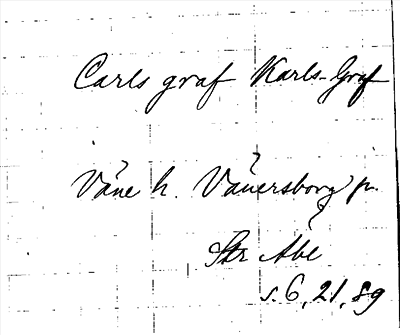 Carls graf Karls-Graf
Väne h. Vänersborg p.
Str Abl
s. 6, 21, 89